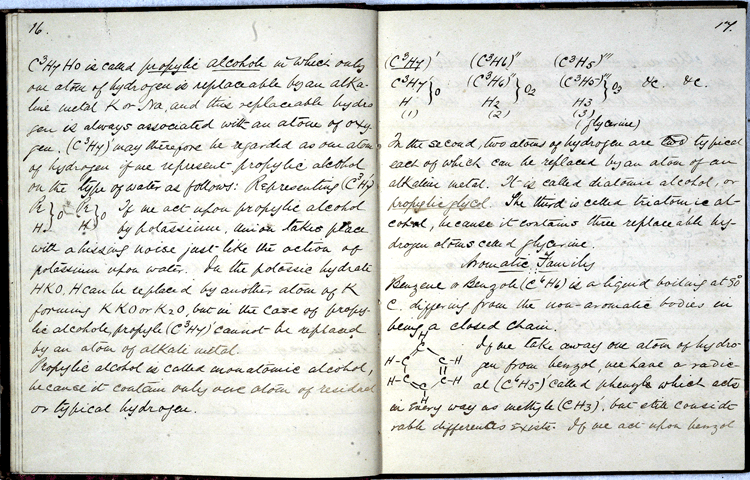 16.
C³H7HO is called propylic alcohole in which only
one atom of hydrogen is replaceable by an alka-
line metal K or Na, and this replaceable hydro
gen is always associated with an atom of oxy-
gen. (C³H7)' may therefore be regarded as one atom
of hydrogen if we represent propylic alcohol
on the type of water as follows: Representing (C³H7)'
R}O R}O If we act upon propylic alcohol
H H by potassium, union takes place
with a hissing noise just like the action of
potassium upon water. In the potassic hydrate
HKO, H can be replaced by another atom of K
forming KKO or K2O, but in the case of propy-
lic alcohole, propyle (C³H7)' cannot be replaced
by an atom of alkali metal.
Propylic alcohol is called monatomic alcohol,
because it contain only one atom of residual
or typical hydrogen.
17.
(C³H7)' (C³H6)" (C³H5)"'
C³H7}O (C³H6)"}O2 (C³H5)"'}O3 &c. &c.
H H2 H3
(1) (2) (3)
(glycerine)
In the second, two atoms of hydrogen are typical
each of which can be replaced by an atom of an
alkaline metal. It is called diatomic alcohol, or
propylic glycol. The third is called triatomic al-
cohol, because it contains three replaceable hy-
drogen atoms called glycerine.
Aromatic Family
Benzene or Benzole (C⁶H6) is a liquid boiling at 80°
C. differing from the non-aromatic bodies in
being a closed chain.
H
C
H-C C-H
H-C C-H
C
H
If we take away one atom of hydro-
gen from benzol we have a radic-
al (C⁶H5)' called phenyle which acts
in every way as methyle (CH3)', but still consid-
rable differences exists. If we act upon benzol